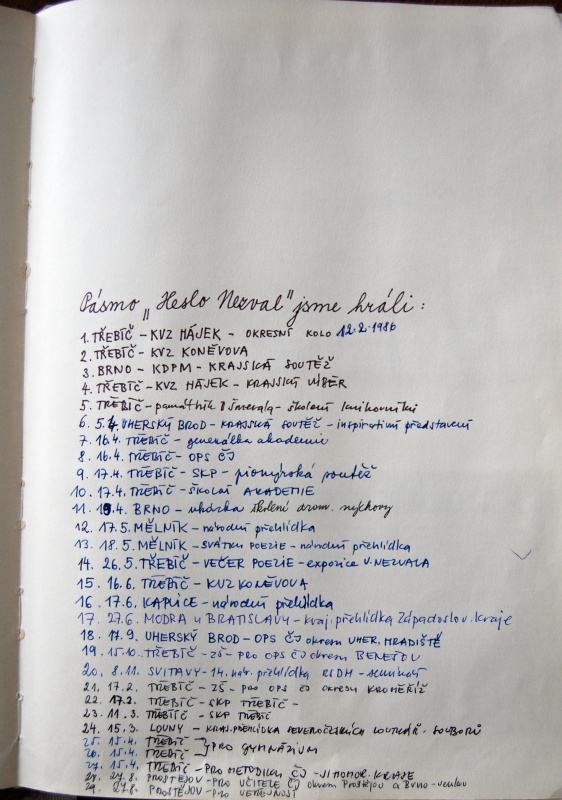 Pásmo „Heslo Nezval" jsme hráli:
1. TŘEBÍČ - KVZ HÁJEK - OKRESNÍ KOLO 12.2.1986
2. TŘEBÍČ - KVZ KONĚVOVA
3. BRNO - KDPM - KRAJSKÁ SOUTĚŽ
4. TŘEBÍČ - KVZ HÁJEK - KRAJSKÝ VÝBĚR
5. TŘEBÍČ - památník B Šmerala - školení knihovníků
6. 5.4. UHERSKÝ BROD - KRAJSKÁ SOUTĚŽ - inspirativní představení
7. 16.4. TŘEBÍČ - generálka akademie
8. 16.4. TŘEBÍČ - OPS ČJ
9. 17.4. TŘEBÍČ - SKP - pionýrská soutěž
10. 17.4. TŘEBÍČ - školní AKADEMIE
11. 19.4. BRNO - ukázka školení dram. výchovy
12. 17.5. MĚLNÍK - národní přehlídka
13. 18.5. MĚLNÍK - SVÁTKY POEZIE - národní přehlídka
14. 26.5. TŘEBÍČ - VEČER POEZIE - expozice V. NEZVALA
15. 16.6. TŘEBÍČ - KVZ KONĚVOVA
16. 17.6. KAPLICE - národní přehlídka
17. 27.6. MODRA u BRATISLAVY - kraj. přehlídka Západoslov. kraje
18. 17.9. UHERSKÝ BROD - OPS ČJ okresu UHER. HRADIŠTĚ
19. 15.10. TŘEBÍČ - ZŠ - PRO OPS ČJ okresu BENEŠOV
20. 8.11. SVITAVY - 14. nár. přehlídka - seminář
21. 17.2. TŘEBÍČ - ZŠ - pro OPS ČJ okresu KROMĚŘÍŽ
22. 17.2. TŘEBÍČ - SKP TŘEBÍČ -
23. 11.3. TŘEBÍČ - SKP TŘEBÍČ
24. 15.3. LOUNY - KRAJ. PŘEHLÍDKA SEVEROČESKÝCH LOUTKÁŘ. SOUBORŮ
25. 15.4. TŘEBÍČ } PRO GYMNÁZIUM
26. 15.4. TŘEBÍČ
27. 15.4. TŘEBÍČ - PRO METODIKU ČJ - JIHOMOR. KRAJE
28. 27.8. PROSTĚJOV - PRO UČITELE ČJ okresu Prostějov a Brno - venkov
29. 27.8. PROSTĚJOV - pro VEŘEJNOST